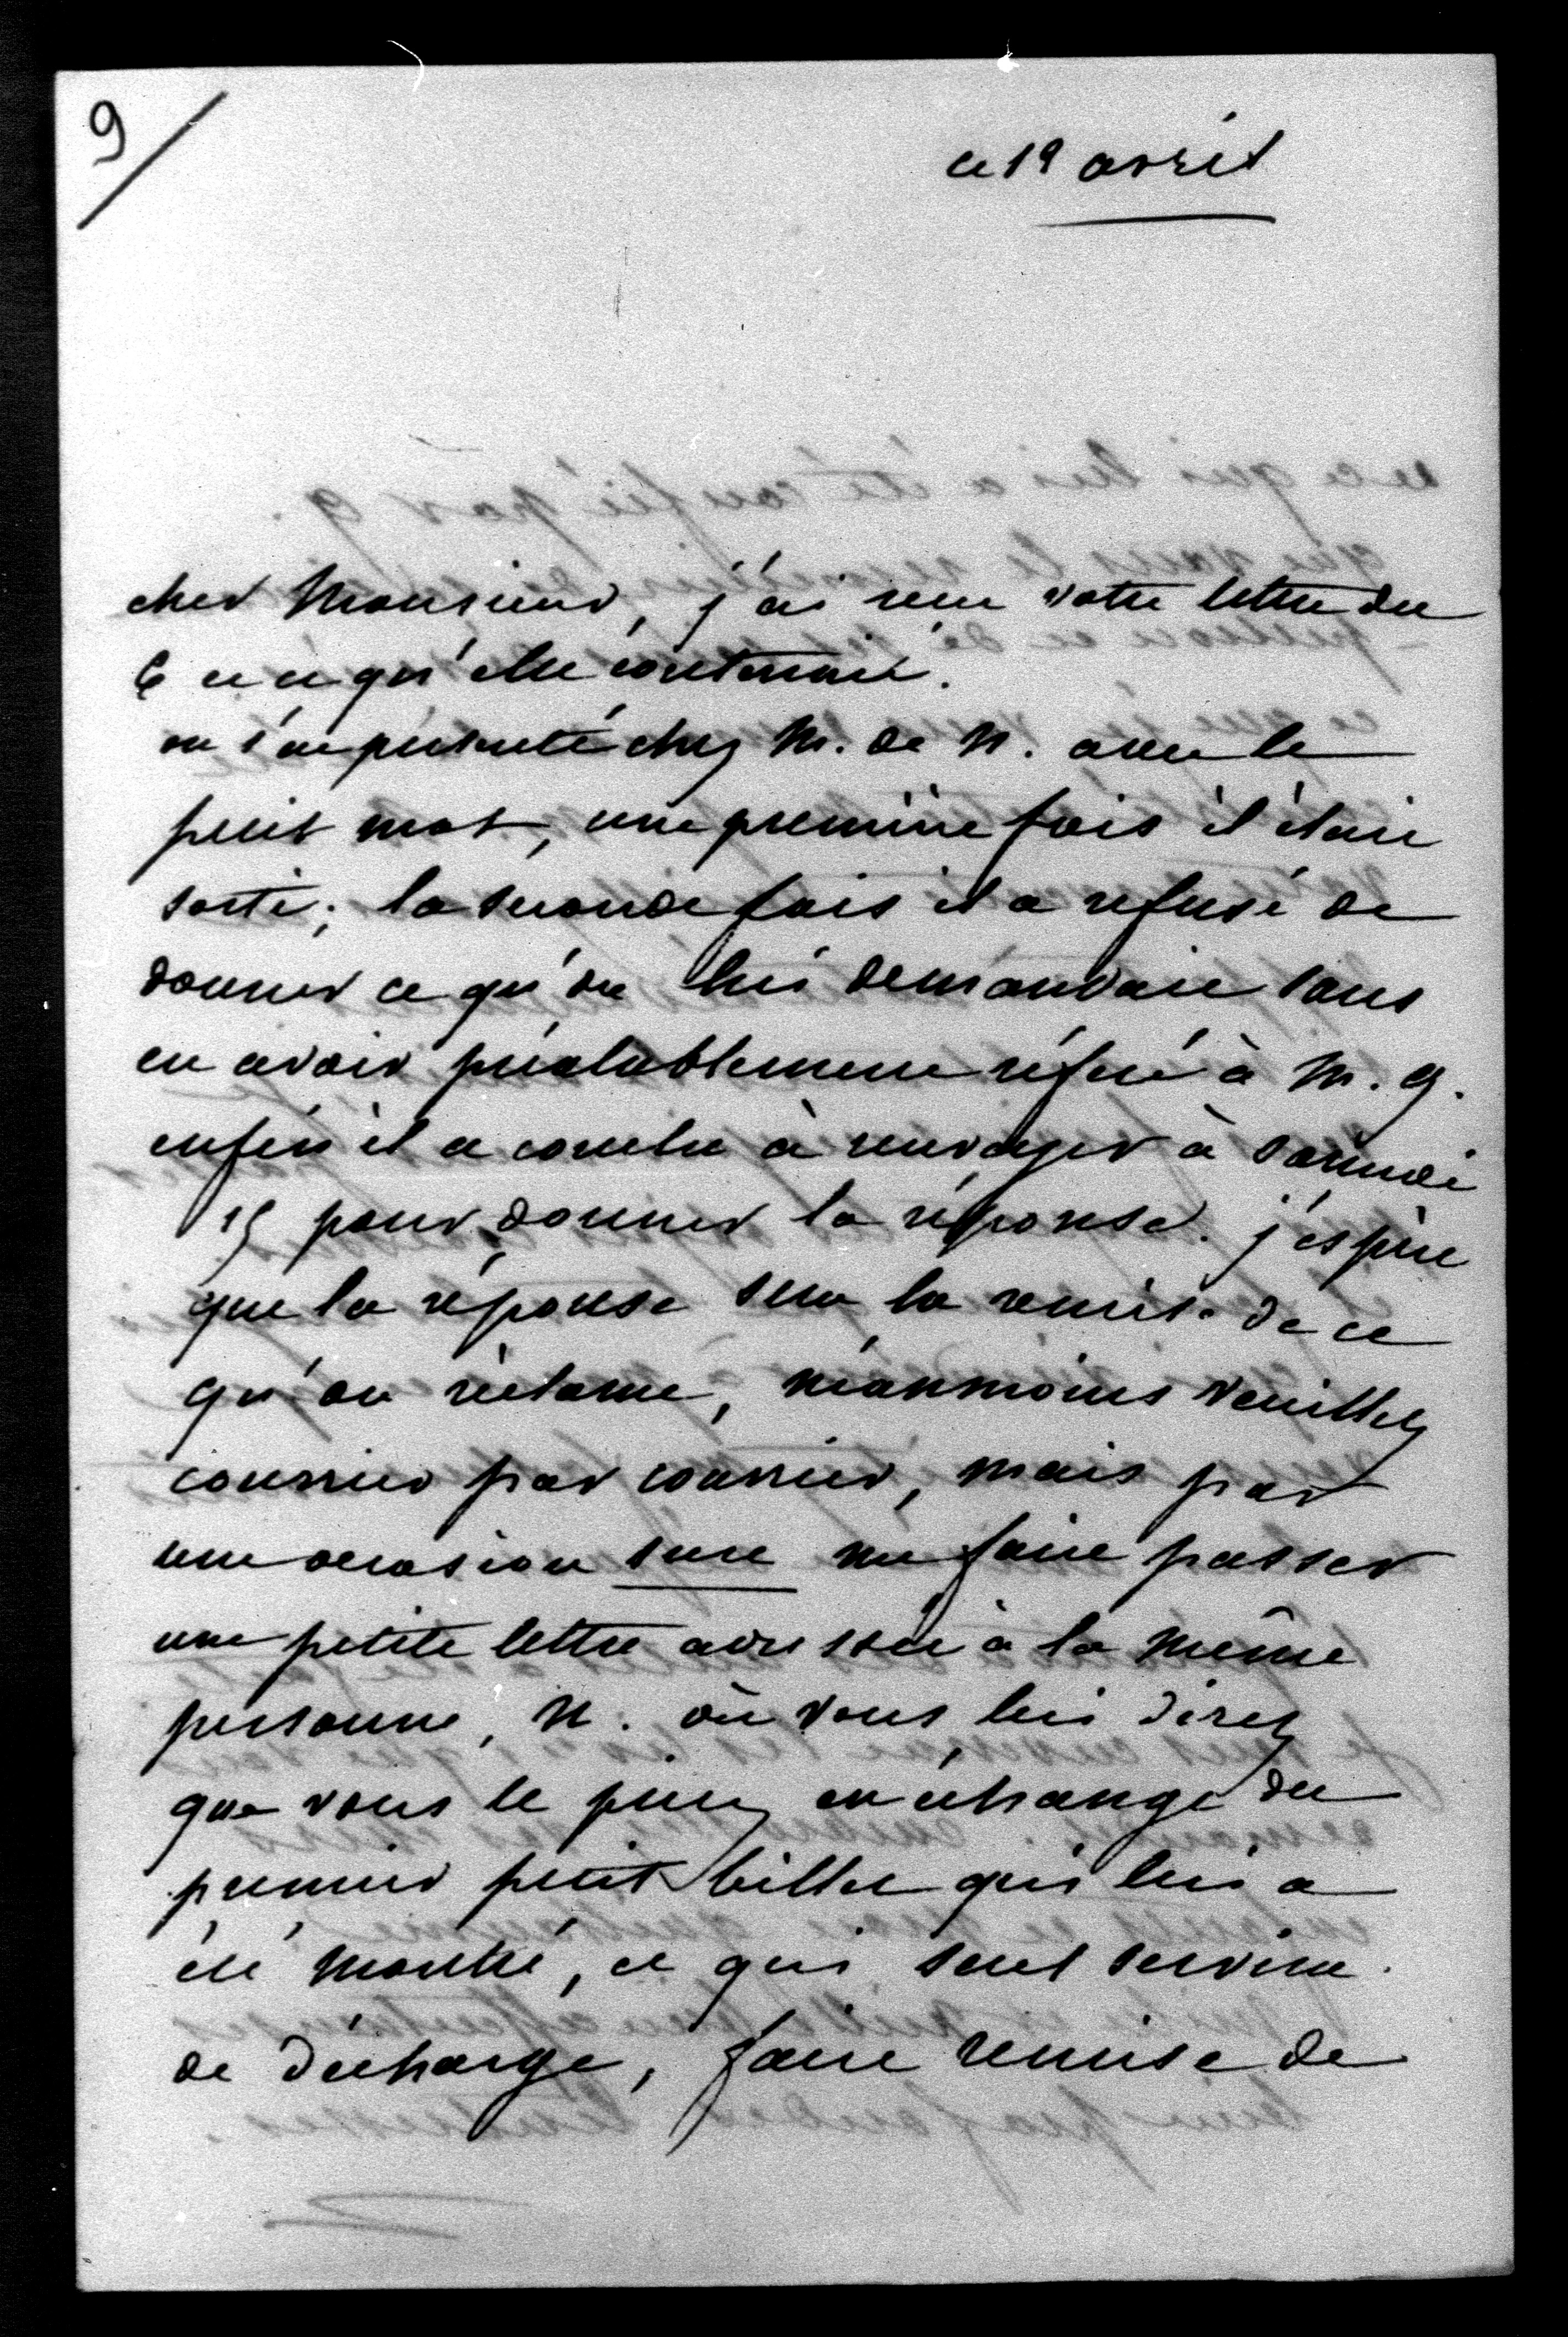 9/
ce 19 avril
cher Monsieur, j'ai reçu votre lettre du
6 et ce qu'elle contenait.
on s'est présenté chez M. de N. avec le
petit mot, une première fois il était
sorti; la seconde fois il a refusé de
donner ce qu'on lui demandait sans
en avoir préalablement référé à M. G.
enfin il a conclu à renvoyer à samedi
15 pour donner la réponse. j'espère
que la réponse sera la remise de ce
qu'on réclame, néanmoins veuillez
courrier par courrier, mais par
une occasion sure me faire passer
une petite lettre adressée à la même
personne, N. où vous lui direz
que vous le priez en échange du
premier petit billet qui lui a
été montré, et qui seul servira
de décharge, faire remise de